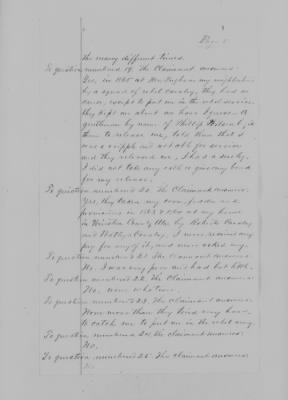 Page 5
the many different times.
To question numbered 19. The Claimant answered
Yes, in 1865 at                 my neighbor
by a squad of rebel cavalry, they had no
cause, except to put me in the rebel service
they kept me about an hour
gentleman by name of Phillip                got
them to release me, told them that I
was a cripple and not able for service
and they released me, I had a surety,
I did not take any oath or give any bond
for my release.
To question numbered 20. The Claimant answered
Yes, they taken my corn, fodder and
provisions in 1863 & 1864 at my house
in Winston County Ala by              Cavalry
and                Cavalry. I never received any
pay for any of it, and never asked any.
To question numbered 21. The Claimant answered
No. I was very poor and had but little.
To question numbered 22. The Claimant answered
No, none whatever.
To question numbered 23. The Claimant answered
None more than they tried very hard
to catch me to put me in the rebel army.
To question numbered 24. The claimant answered
No.
To question numbered 25. The claimant answered
No